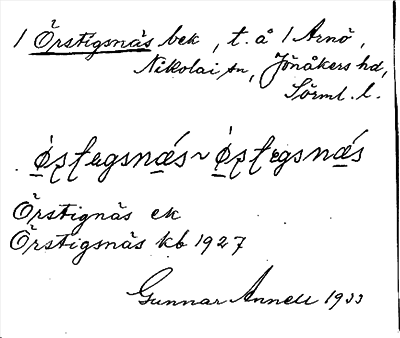 1 Örstigsnäs bek, t. å 1 Arnö,
Nikolai sn, Jönåkers hd,
Sörml. l.
Örstignäs ek
Örstigsnäs kb 1927
Gunnar Annell 1933